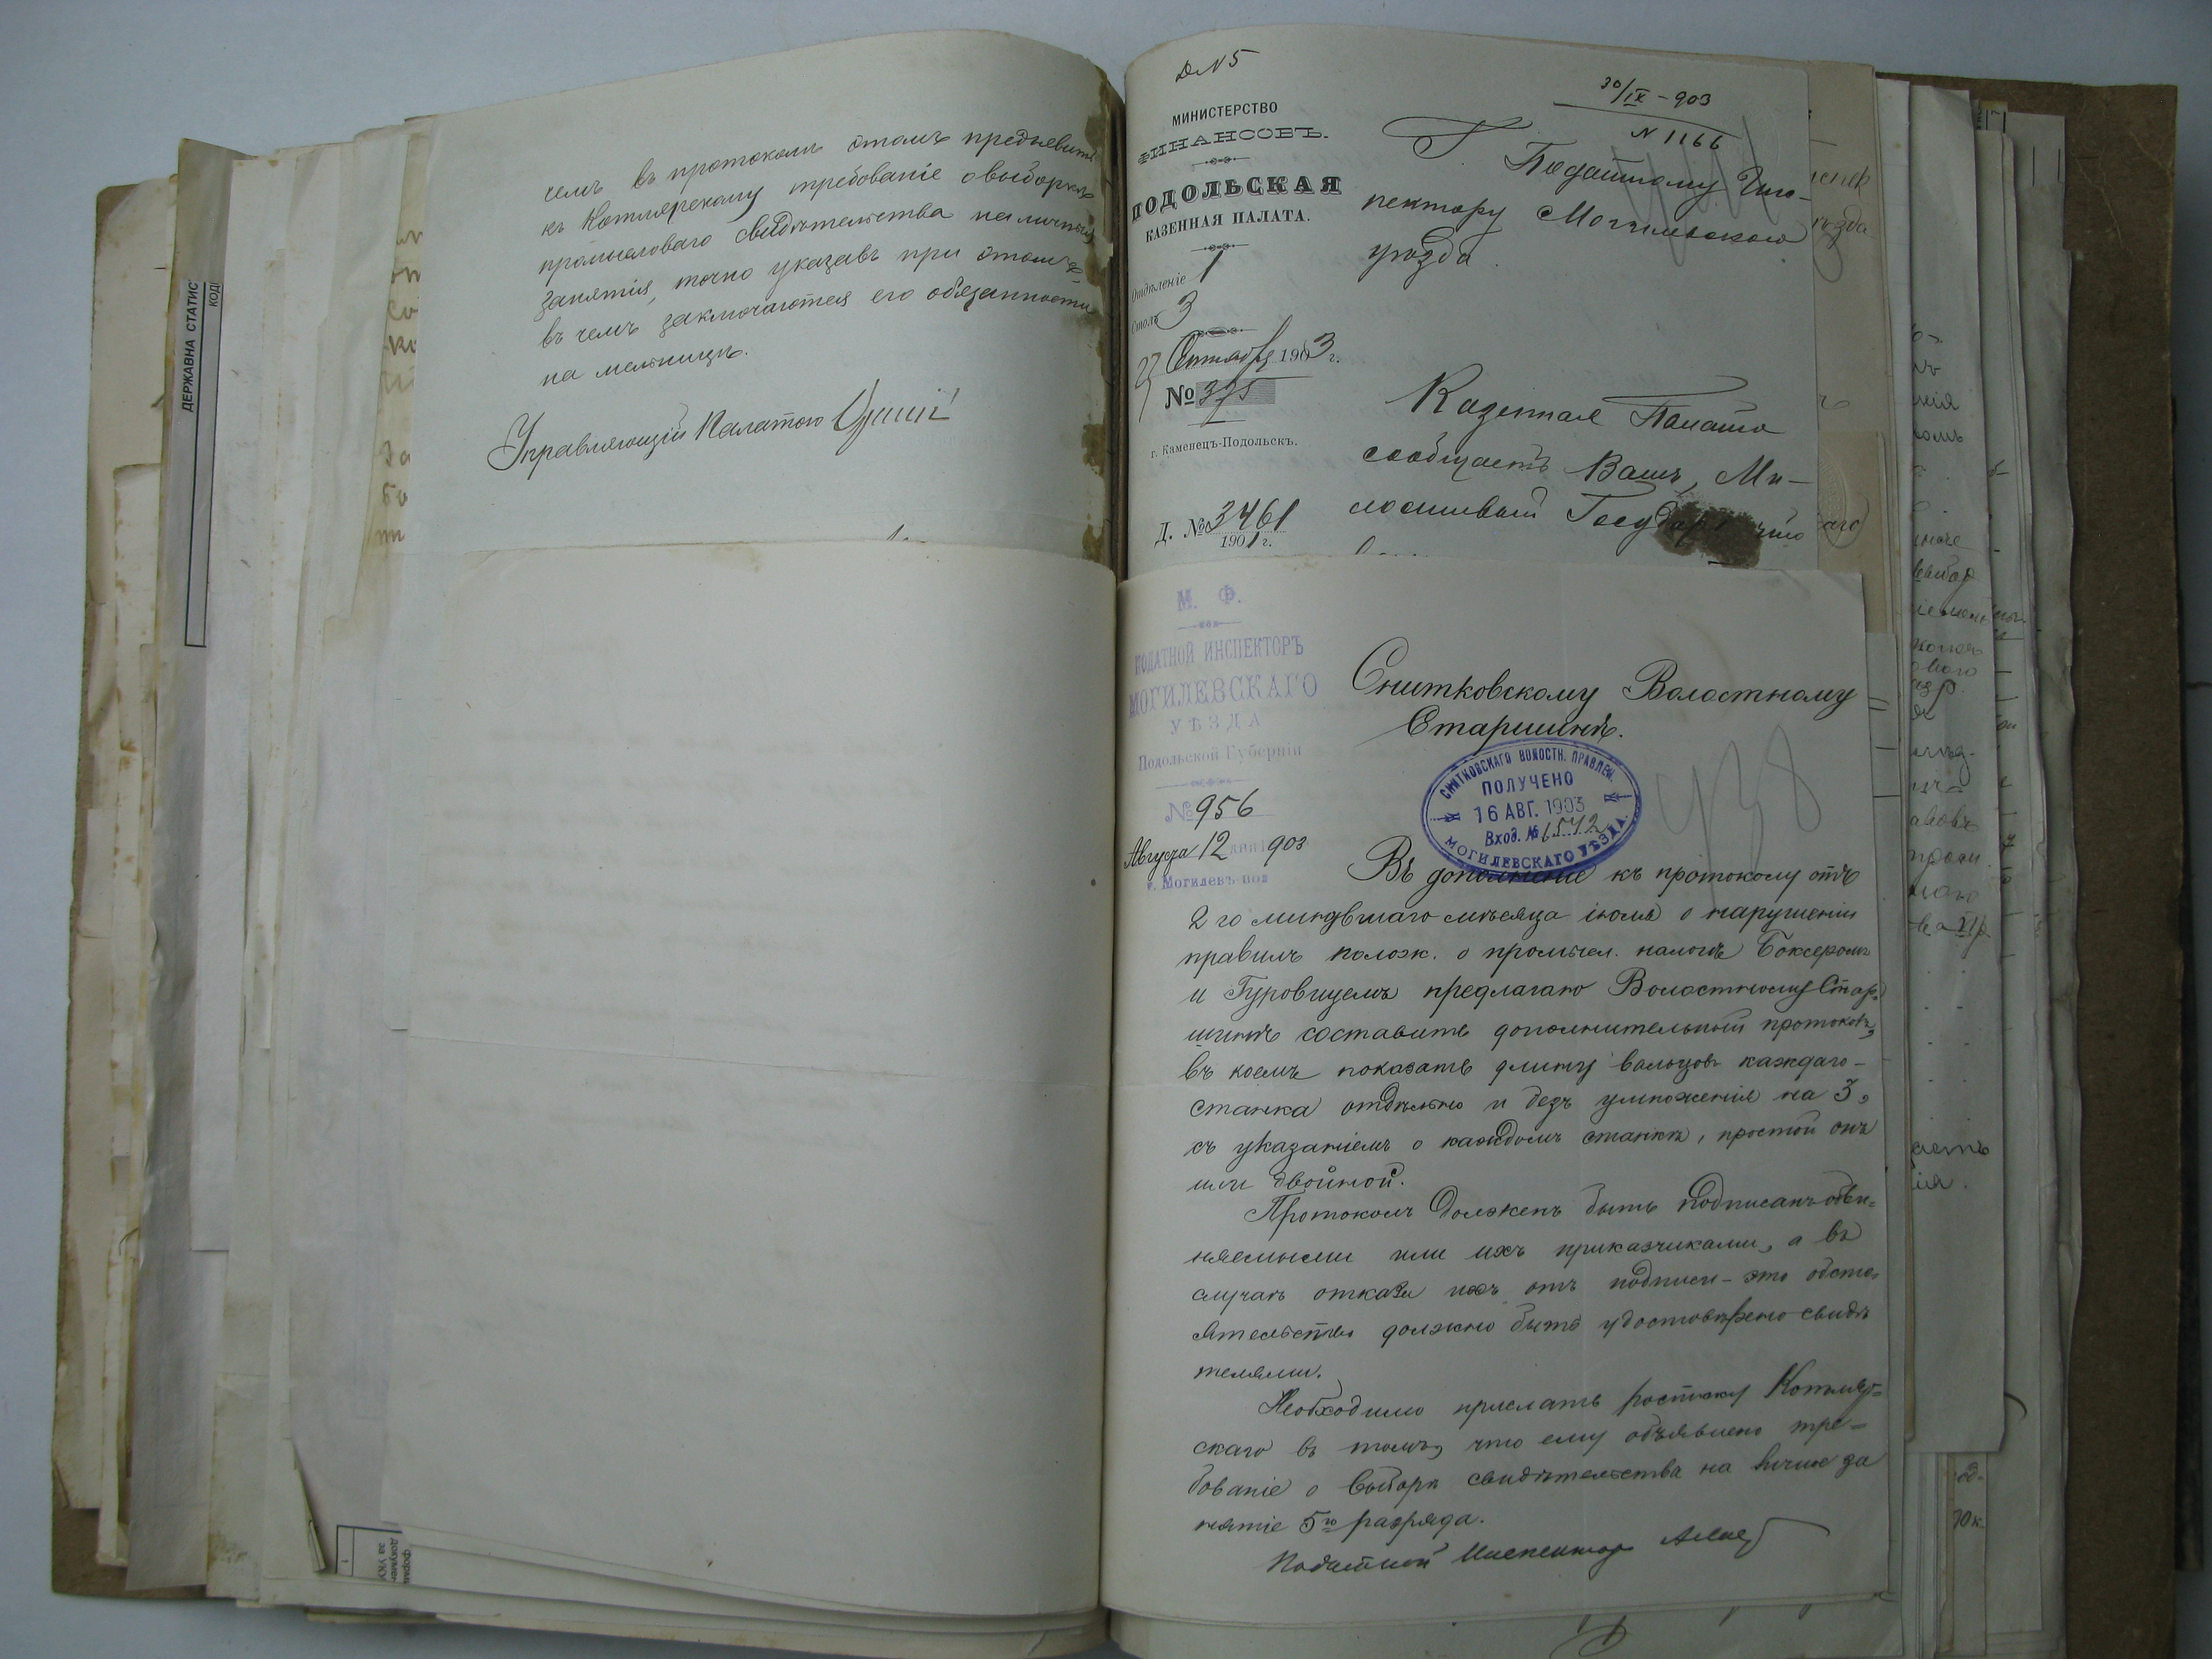 чемъ въ протоколѣ этомъ предъявить
къ Котлярскому требованіе о выборкѣ
промысловаго свидѣтельства на личныя
занятія, точно указавъ при этомъ
въ чемъ заключаются его обязанности
на мельницѣ.
Управляющій Палатою
Д N 5
МИНИСТЕРСТВО
ФИНАНСОВЪ.
ПОДОЛЬСКАЯ
КАЗЕННАЯ ПАЛАТА.
Отдѣленіе 1
Столъ 3
Сентября 1903 г.
№
г. Каменецъ-Подольскъ.
Д. № 3461
1901 г.
30/IX - 903
N 1166
Г. Податному Инс-
пектору Могилевскаго
уѣзда.
Казенная Палата
сообщаетъ Вамъ, Ми-
лостивый Государь, что
М. Ф.
ПОДАТНОЙ ИНСПЕКТОРЪ
МОГИЛЕВСКАГО
УѢЗДА
Подольской Губерніи
№ 956
Августа 12 дня 1903
г. Могилевъ под
Снитковскому Волостному
Старшинѣ.
СНИТКОВСКАГО ВОЛОСТН. ПРАВЛЕН.
ПОЛУЧЕНО
16 АВГ. 1903
Вход. № 1542
МОГИЛЕВСКАГО УѢЗДА
438
Въ дополненіе къ протоколу отъ
2 го минувшаго мѣсяца іюля о нарушеніи
правилъ полож. о промысл. налогѣ Боксеромъ
и Гуровицемъ предлагаю Волостному Стар-
шинѣ составить дополнительный протоколъ,
въ коемъ показать длину вальцовъ каждаго
станка отдѣльно и безъ умноженія на 3,
съ указаніемъ о каждомъ станкѣ, простой онъ
или двойной.
Протоколъ долженъ быть подписанъ обви-
няемыми или ихъ приказчиками, а въ
случаѣ отказа ихъ отъ подписи - это обсто-
ятельство должно быть удостовѣрено свидѣ
телями.
Необходимо прислать росписку Котляр-
скаго въ томъ, что ему объявлено тре-
бованіе о выборкѣ свидѣтельства на личное за
нятіе 5го разряда.
Податной Инспекторъ
ДЕРЖАВНА СТАТИС
КОД